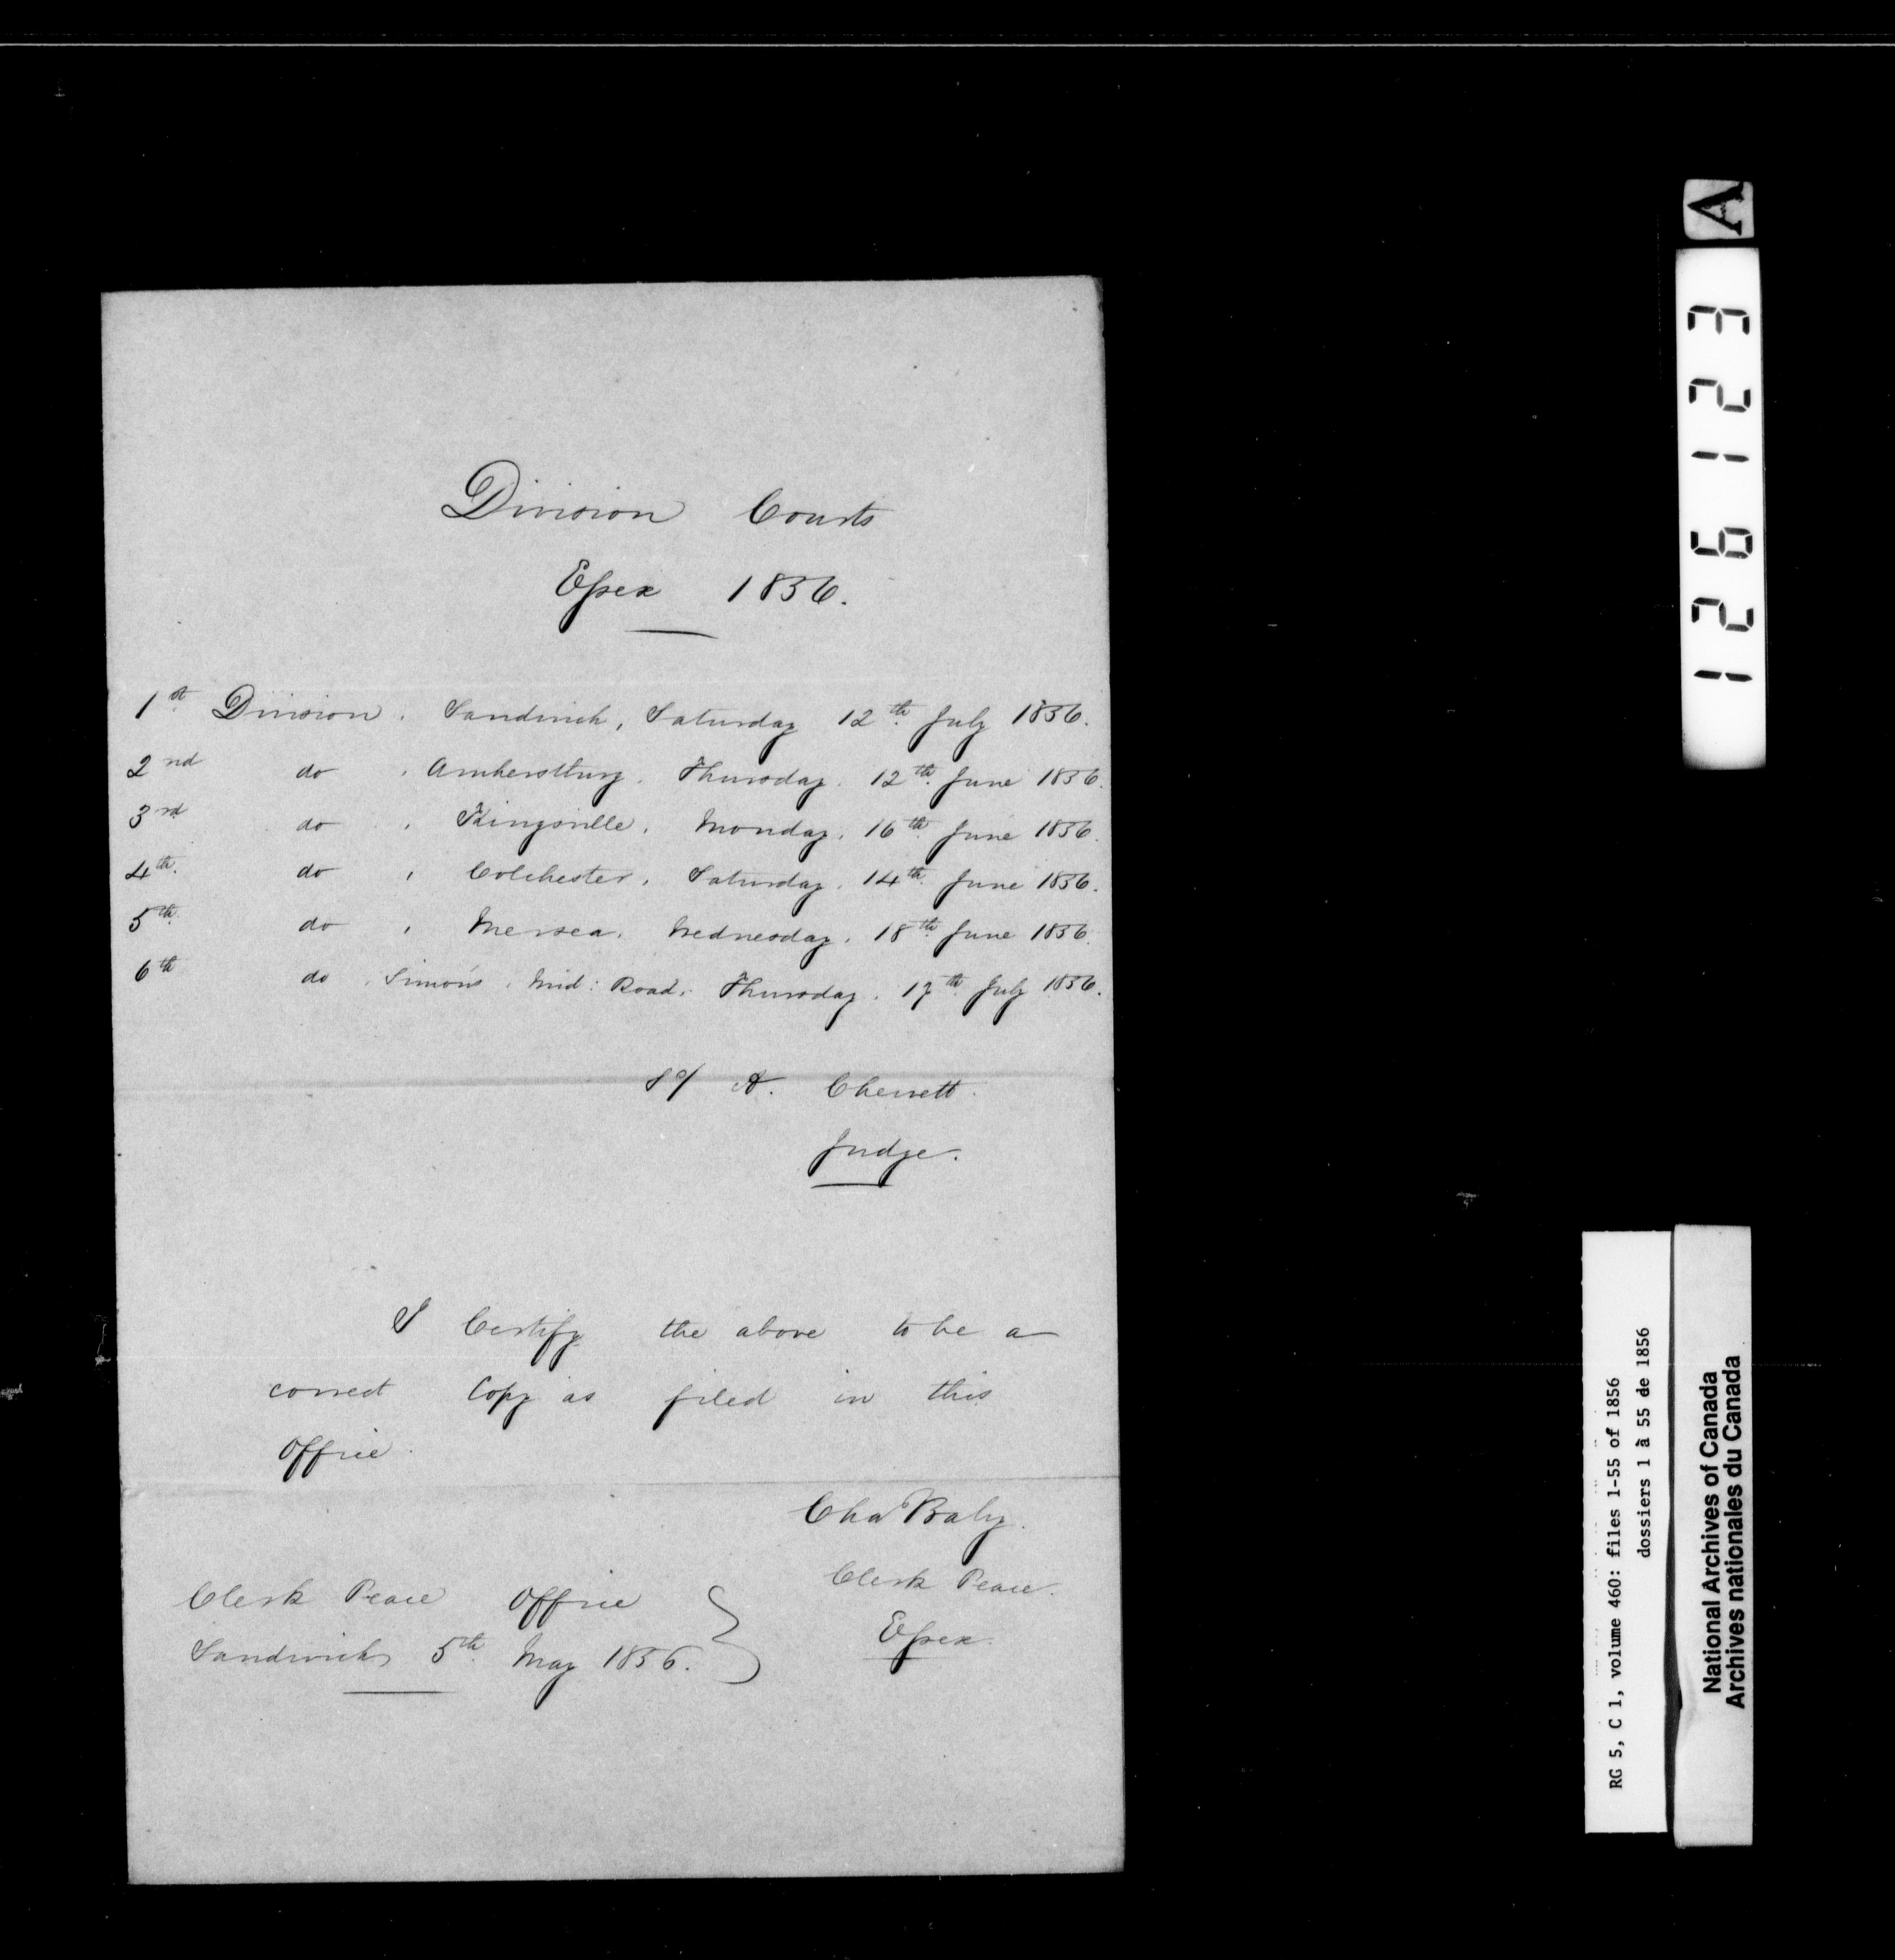 Division Courts
Essex 1856.
1st Division. Sandwich, Saturday 12th July 1856.
2nd do . Amherstburg. Thursday. 12th June 1856.
3rd do . Kingsville. Monday. 16th June 1856.
4th do . Colchester. Saturday. 14th June 1856.
5th do . Mersea. Wednesday. 18th June 1856.
6th do . Simon's. Mid: Road. Thursday. 17th July 1856.
Sd/ A. Chewett.
Judge.
I Certify the above to be a
correct Copy as filed in this
Office.
Chas Baby.
Clerk Peace.
Essex.
Clerk Peace Office
Sandwich 5th May 1856.
A
129123
RG 5, C 1, volume 460: files 1-55 of 1856
dossiers 1 à 55 de 1856
National Archives of Canada
Archives nationales du Canada